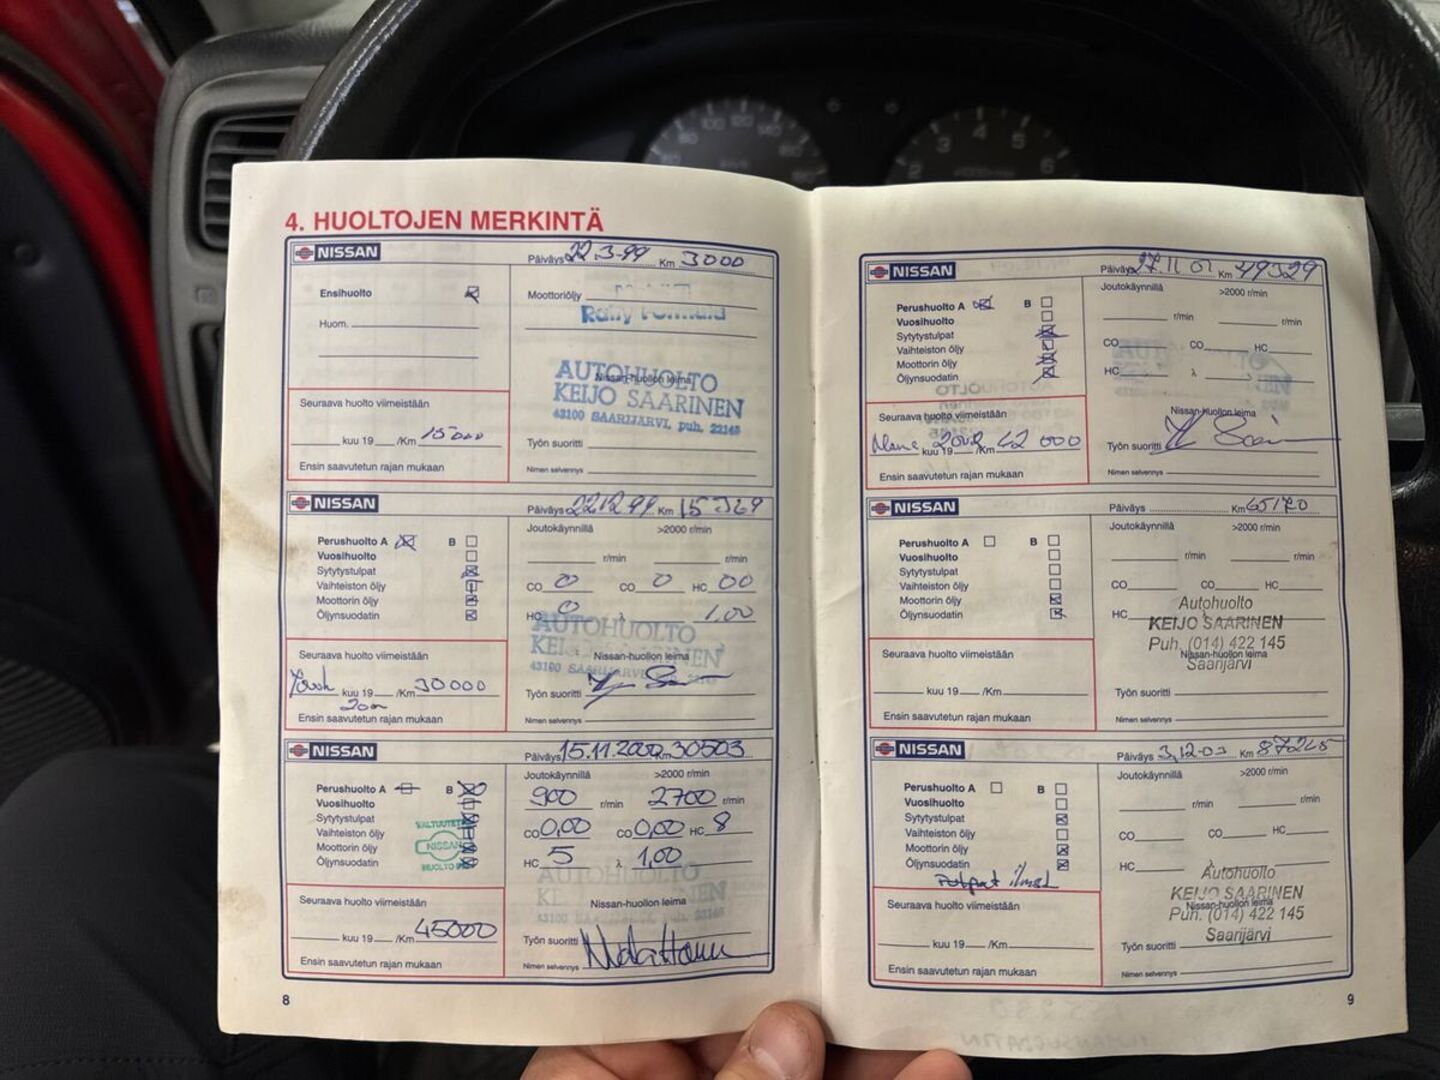 4. HUOLTOJEN MERKINTÄ
NISSAN
Päiväys 22.3-99 Km 3000
Ensihuolto
Moottoriöljy
Huom.
AUTOHUOLTO
Nissan-huollon leima
KEIJO SAARINEN
43100 SAARIJARVI, puh. 22145
Seuraava huolto viimeistään
kuu 19 /Km 15000
Työn suoritti
Ensin saavutetun rajan mukaan
Nimen selvennys
NISSAN
Päiväys 22.12.99 Km 15369
Perushuolto A B
Vuosihuolto
Sytytystulpat
Vaihteiston öljy
Moottorin öljy
Öljynsuodatin
Joutokäynnillä >2000 r/min
r/min r/min
CO 0 CO 0 HC 00
HC 0 λ 1,00
AUTOHUOLTO
Nissan-huollon leima
Seuraava huolto viimeistään
kuu 19 /Km 30000
Työn suoritti
Ensin saavutetun rajan mukaan
Nimen selvennys
NISSAN
Päiväys 15.11.2000 30503
Perushuolto A B
Vuosihuolto
Sytytystulpat
Vaihteiston öljy
Moottorin öljy
Öljynsuodatin
NISSAN
Joutokäynnillä >2000 r/min
900 r/min 2700 r/min
CO 0,00 CO 0,00 HC 8
HC 5 λ 1,00
AUTOHUOLTO
Nissan-huollon leima
Seuraava huolto viimeistään
kuu 19 /Km 45000
Työn suoritti
Ensin saavutetun rajan mukaan
Nimen selvennys
8
NISSAN
Päiväys 27.11 01 Km 49329
Perushuolto A B
Vuosihuolto
Sytytystulpat
Vaihteiston öljy
Moottorin öljy
Öljynsuodatin
Joutokäynnillä >2000 r/min
r/min r/min
CO CO HC
HC λ
Nissan-huollon leima
Seuraava huolto viimeistään
2002 kuu 19 /Km 62000
Työn suoritti
Ensin saavutetun rajan mukaan
Nimen selvennys
NISSAN
Päiväys Km 65170
Perushuolto A B
Vuosihuolto
Sytytystulpat
Vaihteiston öljy
Moottorin öljy
Öljynsuodatin
Joutokäynnillä >2000 r/min
r/min r/min
CO CO HC
HC λ
Autohuolto
KEIJO SAARINEN
Puh. (014) 422 145
Nissan-huollon leima
Saarijärvi
Seuraava huolto viimeistään
kuu 19 /Km
Työn suoritti
Ensin saavutetun rajan mukaan
Nimen selvennys
NISSAN
Päiväys 3,12-03 Km 87245
Perushuolto A B
Vuosihuolto
Sytytystulpat
Vaihteiston öljy
Moottorin öljy
Öljynsuodatin
Joutokäynnillä >2000 r/min
r/min r/min
CO CO HC
HC λ
Autohuolto
KEIJO SAARINEN
Nissan-huollon leima
Puh. (014) 422 145
Saarijärvi
Seuraava huolto viimeistään
kuu 19 /Km
Työn suoritti
Ensin saavutetun rajan mukaan
Nimen selvennys
9